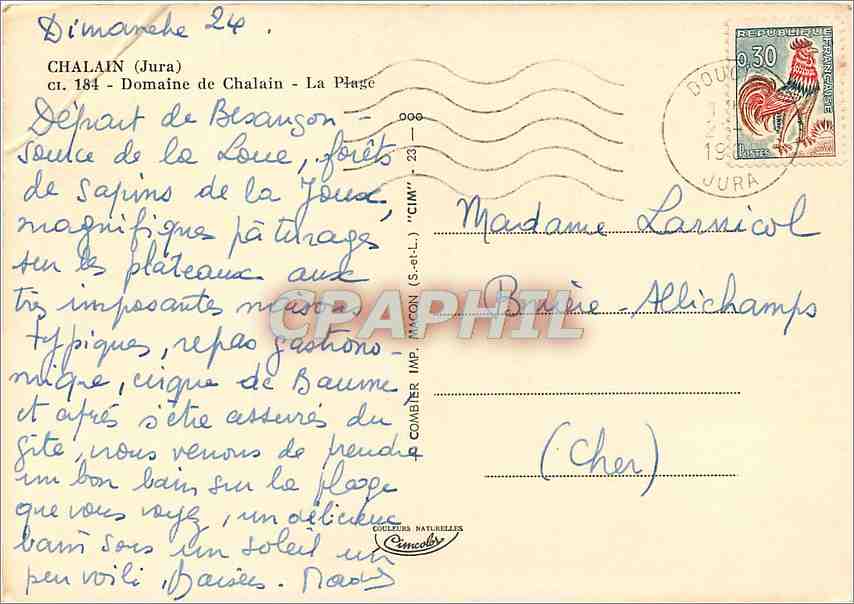 Dimanche 24.
CHALAIN (Jura)
CI. 184 - Domaine de Chalain - La Plage
Départ de Besançon -
source de la Loue, forêts
de sapins de la Joux,
magnifiques pâturages
sur les plateaux aux
très imposantes maisons
typiques, repas gastrono-
mique, cirque de Baume,
et après s'être assurés du
gîte, nous venons de prendre
un bon bain sur la plage
que vous voyez, un délicieux
bain sous un soleil un
peu voilé, Baisers.
COMBIER IMP. MACON (S.-et-L.) "CIM" - 23 -
COULEURS NATURELLES
Cimcolor
REPUBLIQUE FRANÇAISE
0,30
POSTES
DOUC
19
JURA
Madame Larnicol
Bruère-Allichamps
(Cher)
CPAPHIL